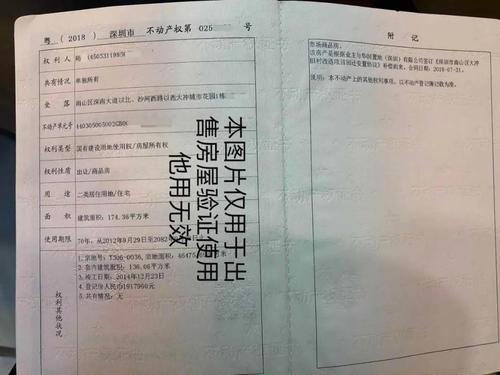 粤(2018)深圳市不动产权第025 号
权利人
共有情况 单独所有
坐落 南山区深南大道以北、沙河西路以西大冲城市花园1栋
不动产单元号
权利类型 国有建设用地使用权/房屋所有权
权利性质 出让/商品房
用途 二类居住用地/住宅
面积 建筑面积:174.36平方米
使用期限 70年,从2012年9月29日至2082
权利其他状况
1.宗地号:T306-0036,宗地面积:
2.套内建筑面积:136.06平方米
3.竣工日期:2014年12月23日
4.登记价人民币1917960元
5.共有情况:无
附记
市场商品房。
该房产是根据业主与华润置地(深圳)有限公司签订《深圳市南山区大冲
旧村改造项目回迁安置协议》补偿而来。合同日期:2018-07-31。
说明:本不动产上的其他权利事项,以不动产登记簿记载为准。
本图片仅用于出
售房屋验证使用
他用无效